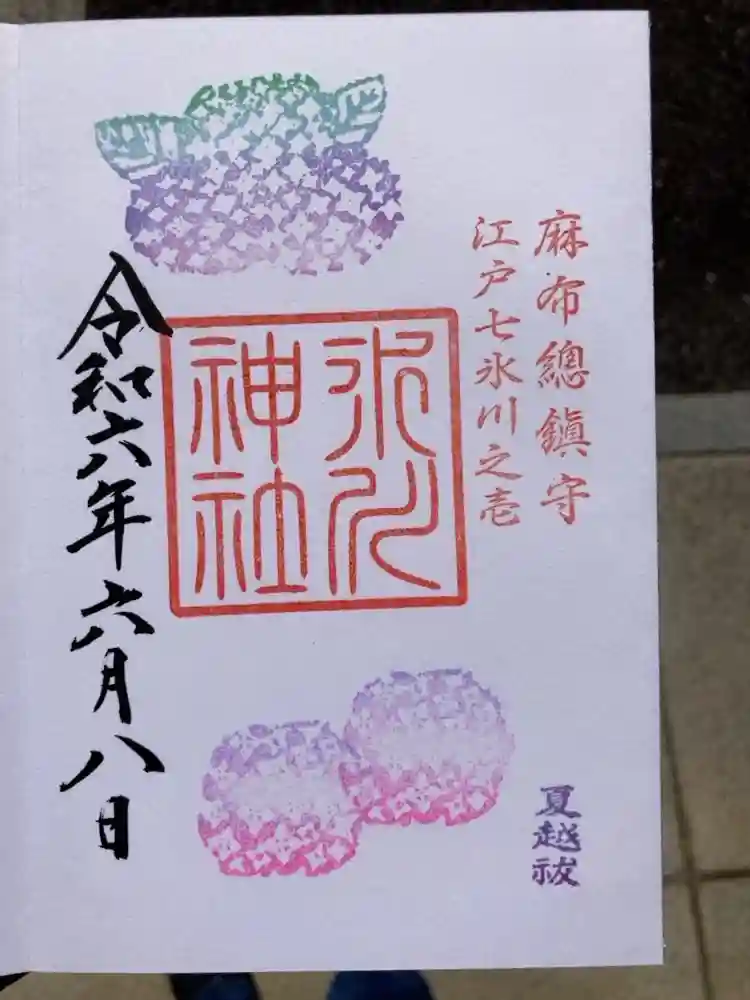 麻布總鎮守
江戸七氷川之壱
氷川
神社
令和六年六月八日
夏越祓